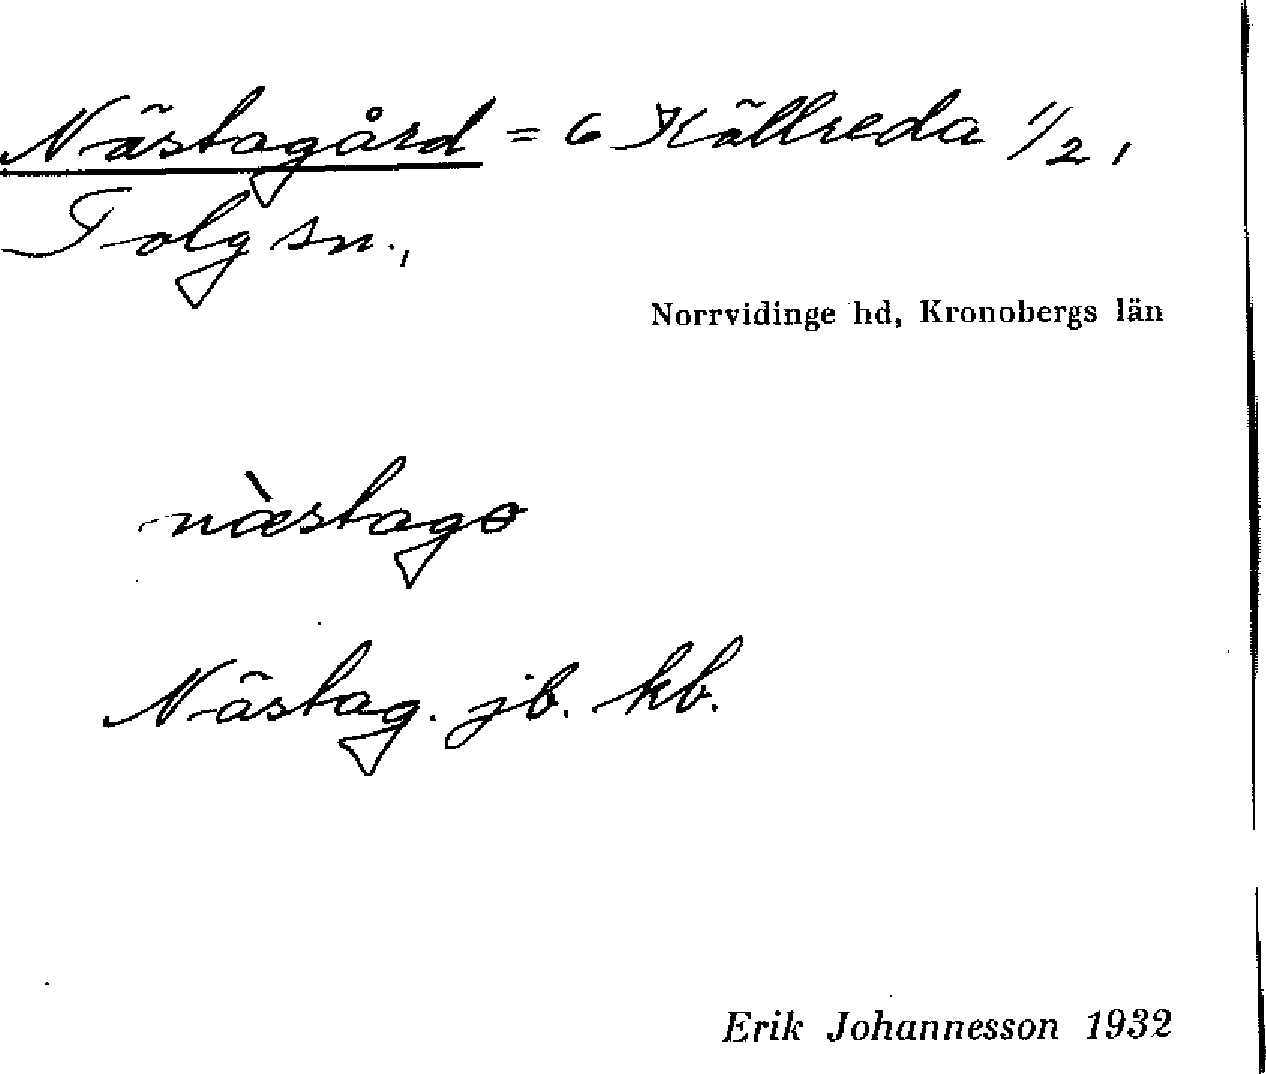 Nästagård = 6 Källreda 1/2,
Tolg sn.,
Norrvidinge hd, Kronobergs län
næ̀stagɵ
Nästag. jb. kb.
Erik Johannesson 1932